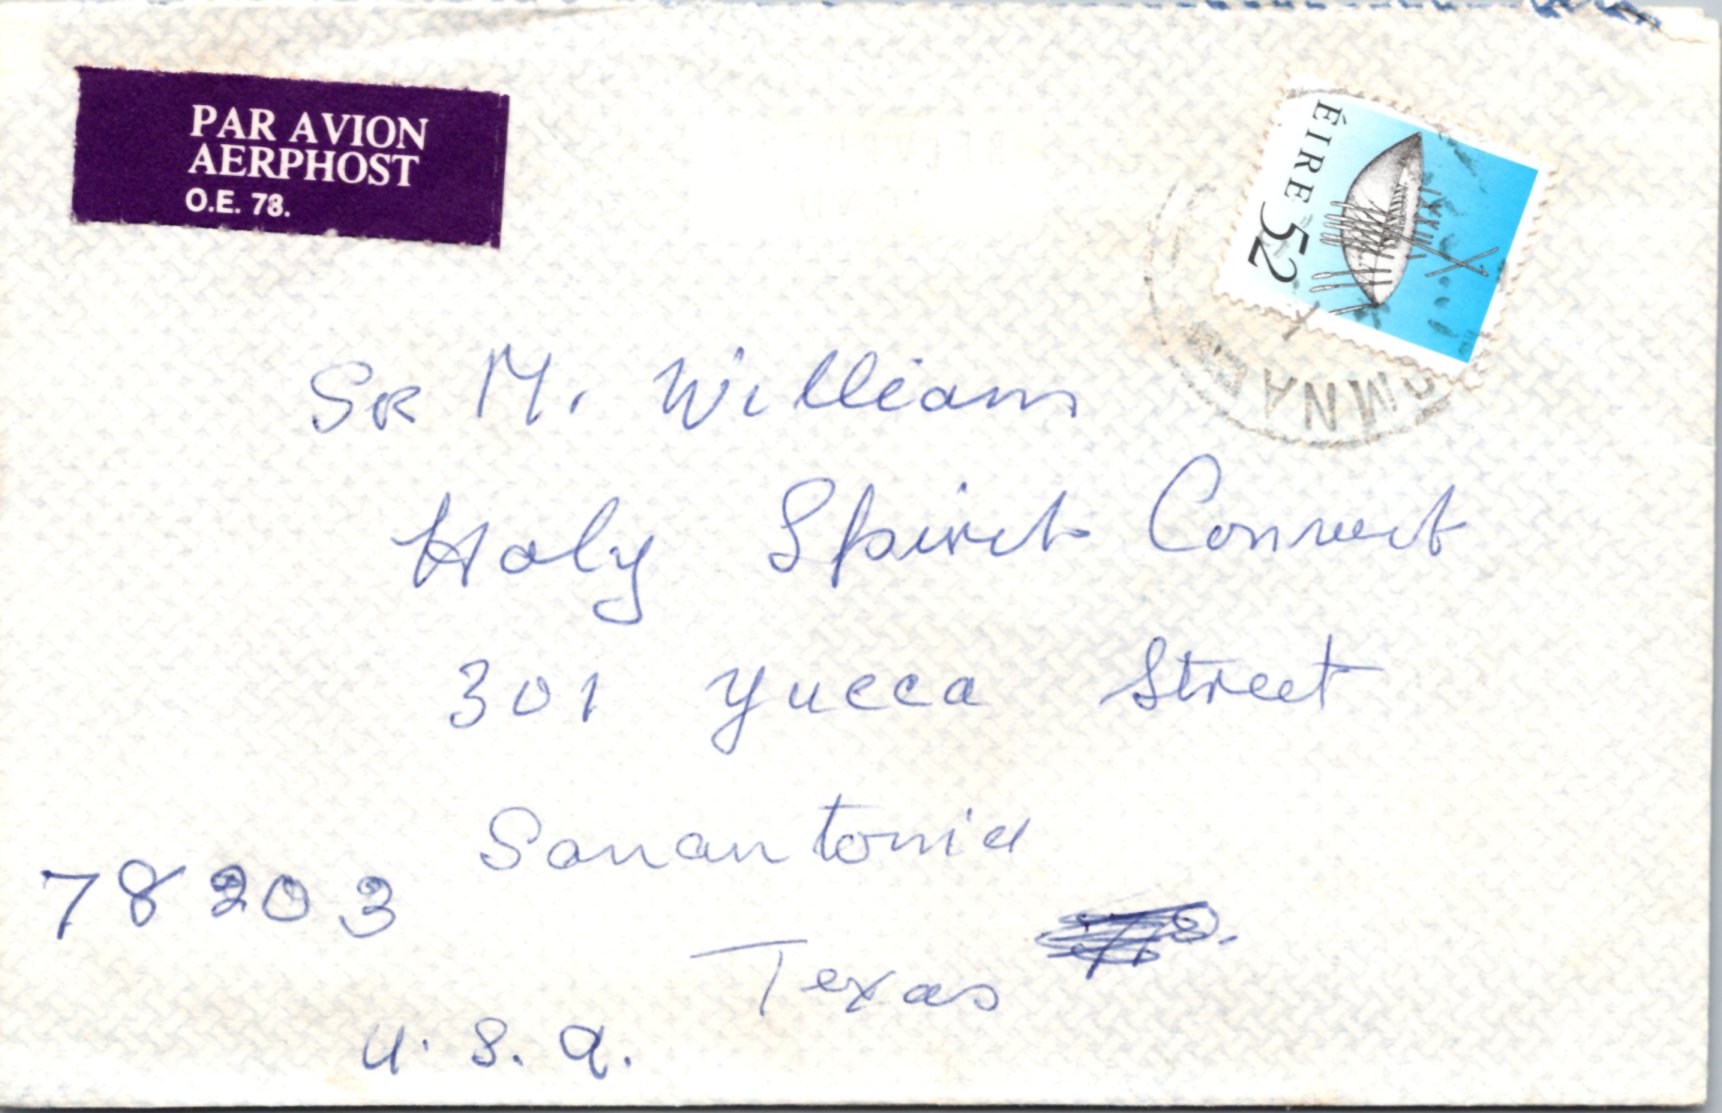 PAR AVION
AERPHOST
O.E. 78.
ÉIRE 52
Sr M. Williams
Holy Spirit Convect
301 Yucca Street
Sanantonia
78203
Texas
U.S.A.